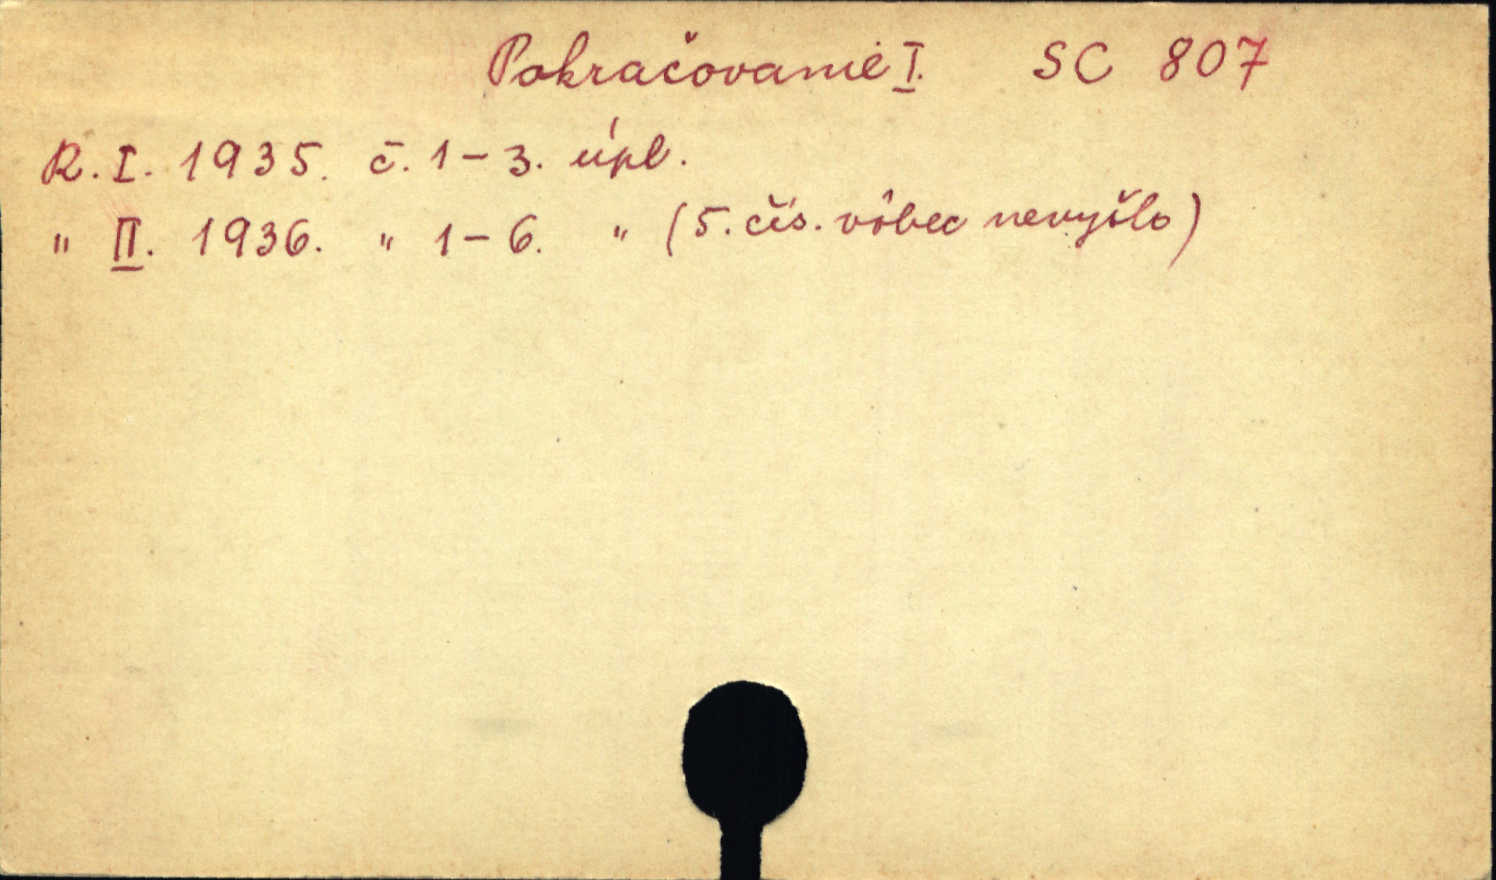 Pokračovanie I. SC 807
R. I. 1935. č. 1-3. úpl.
" II. 1936. " 1-6. " (5. čís. vôbec nevyšlo)